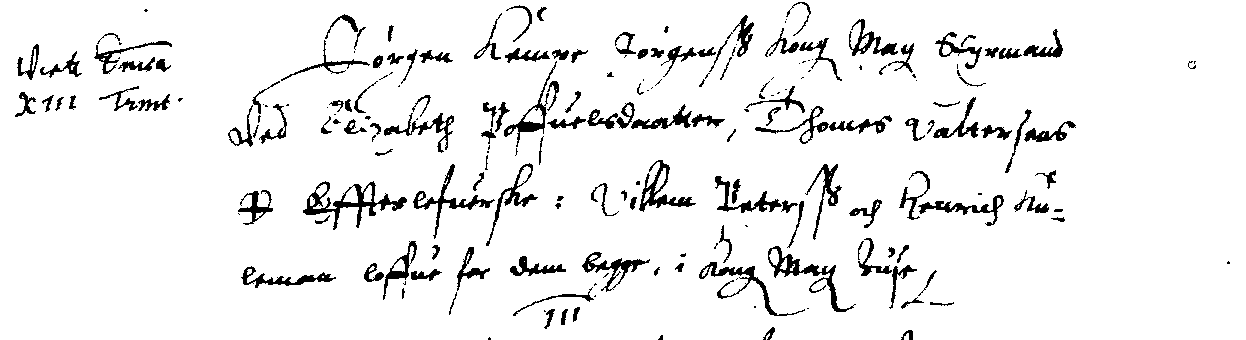 Viett Domca
XIII Trinit.
Jørgen Kempe Jørgenss Kong May Styrmand
Ved Elizabeth Poffuelsdaatter, Thomes Valtersens
Effterlefuerske : Villem Peterss och Henrich Ku=
leman loffue for dem begge, i Kong May huse
III